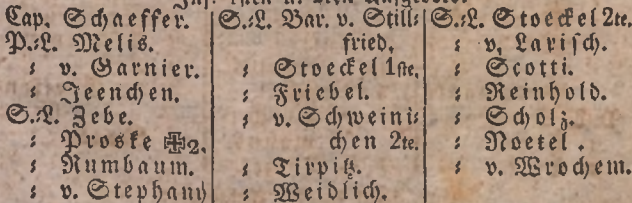 Cap. Schaeffer.
P.=L. Melis.
= v. Garnier.
= Jeenchen.
S.=L. Zebe.
= Proske ✠2.
= Rumbaum.
= v. Stephany
S.=L. Bar. v. Still=
fried.
= Stoeckel 1ste.
= Friebel.
= v. Schweini=
chen 2te.
= Tirpitz.
= Weidlich.
S.=L. Stoeckel 2te.
= v. Larisch.
= Scotti.
= Reinhold.
= Scholz.
= Noetel.
= v. Wrochem.